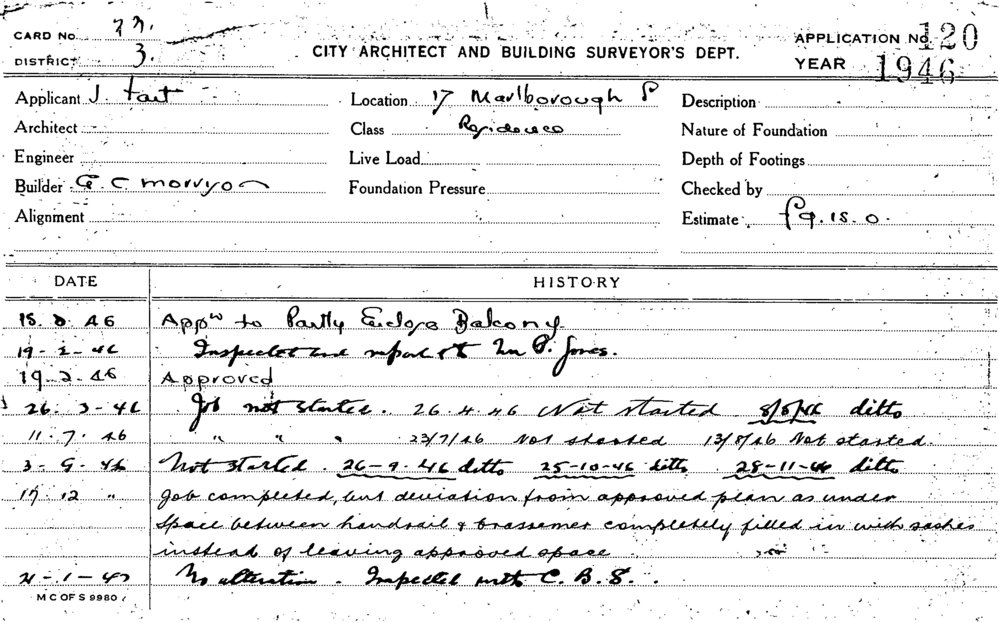 CARD No. 77.
APPLICATION No. 120
DISTRICT 3.
CITY ARCHITECT AND BUILDING SURVEYOR'S DEPT.
YEAR 1946
Applicant J. Tait
Location 17 Marlborough St
Description
Architect
Class Residence
Nature of Foundation
Engineer
Live Load
Depth of Footings
Builder C. Morryon
Foundation Pressure
Checked by
Alignment
Estimate £9.15.0.
DATE HISTORY
15. 2. 46 Appn to Partly Enclose Balcony.
19 - 2 - 46 Inspected and report to Mr P. Jones.
19. 2. 46 Approved
26. 3 - 46 Job not started. 26.4.46 Not started 8/5/46 ditto
11. 7. 46 " " " 23/7/46 Not started 13/8/46 Not started.
3 - 9 - 46 Not started. 26-9-46 ditto 25-10-46 ditto 28-11-46 ditto
17. 12 " Job completed, but deviation from approved plan as under
Space between handrail & brassemer completely filled in with sashes
instead of leaving approved space
21 - 1 - 47 No alteration. Inspected with C. B. S.
M C OF S 9980